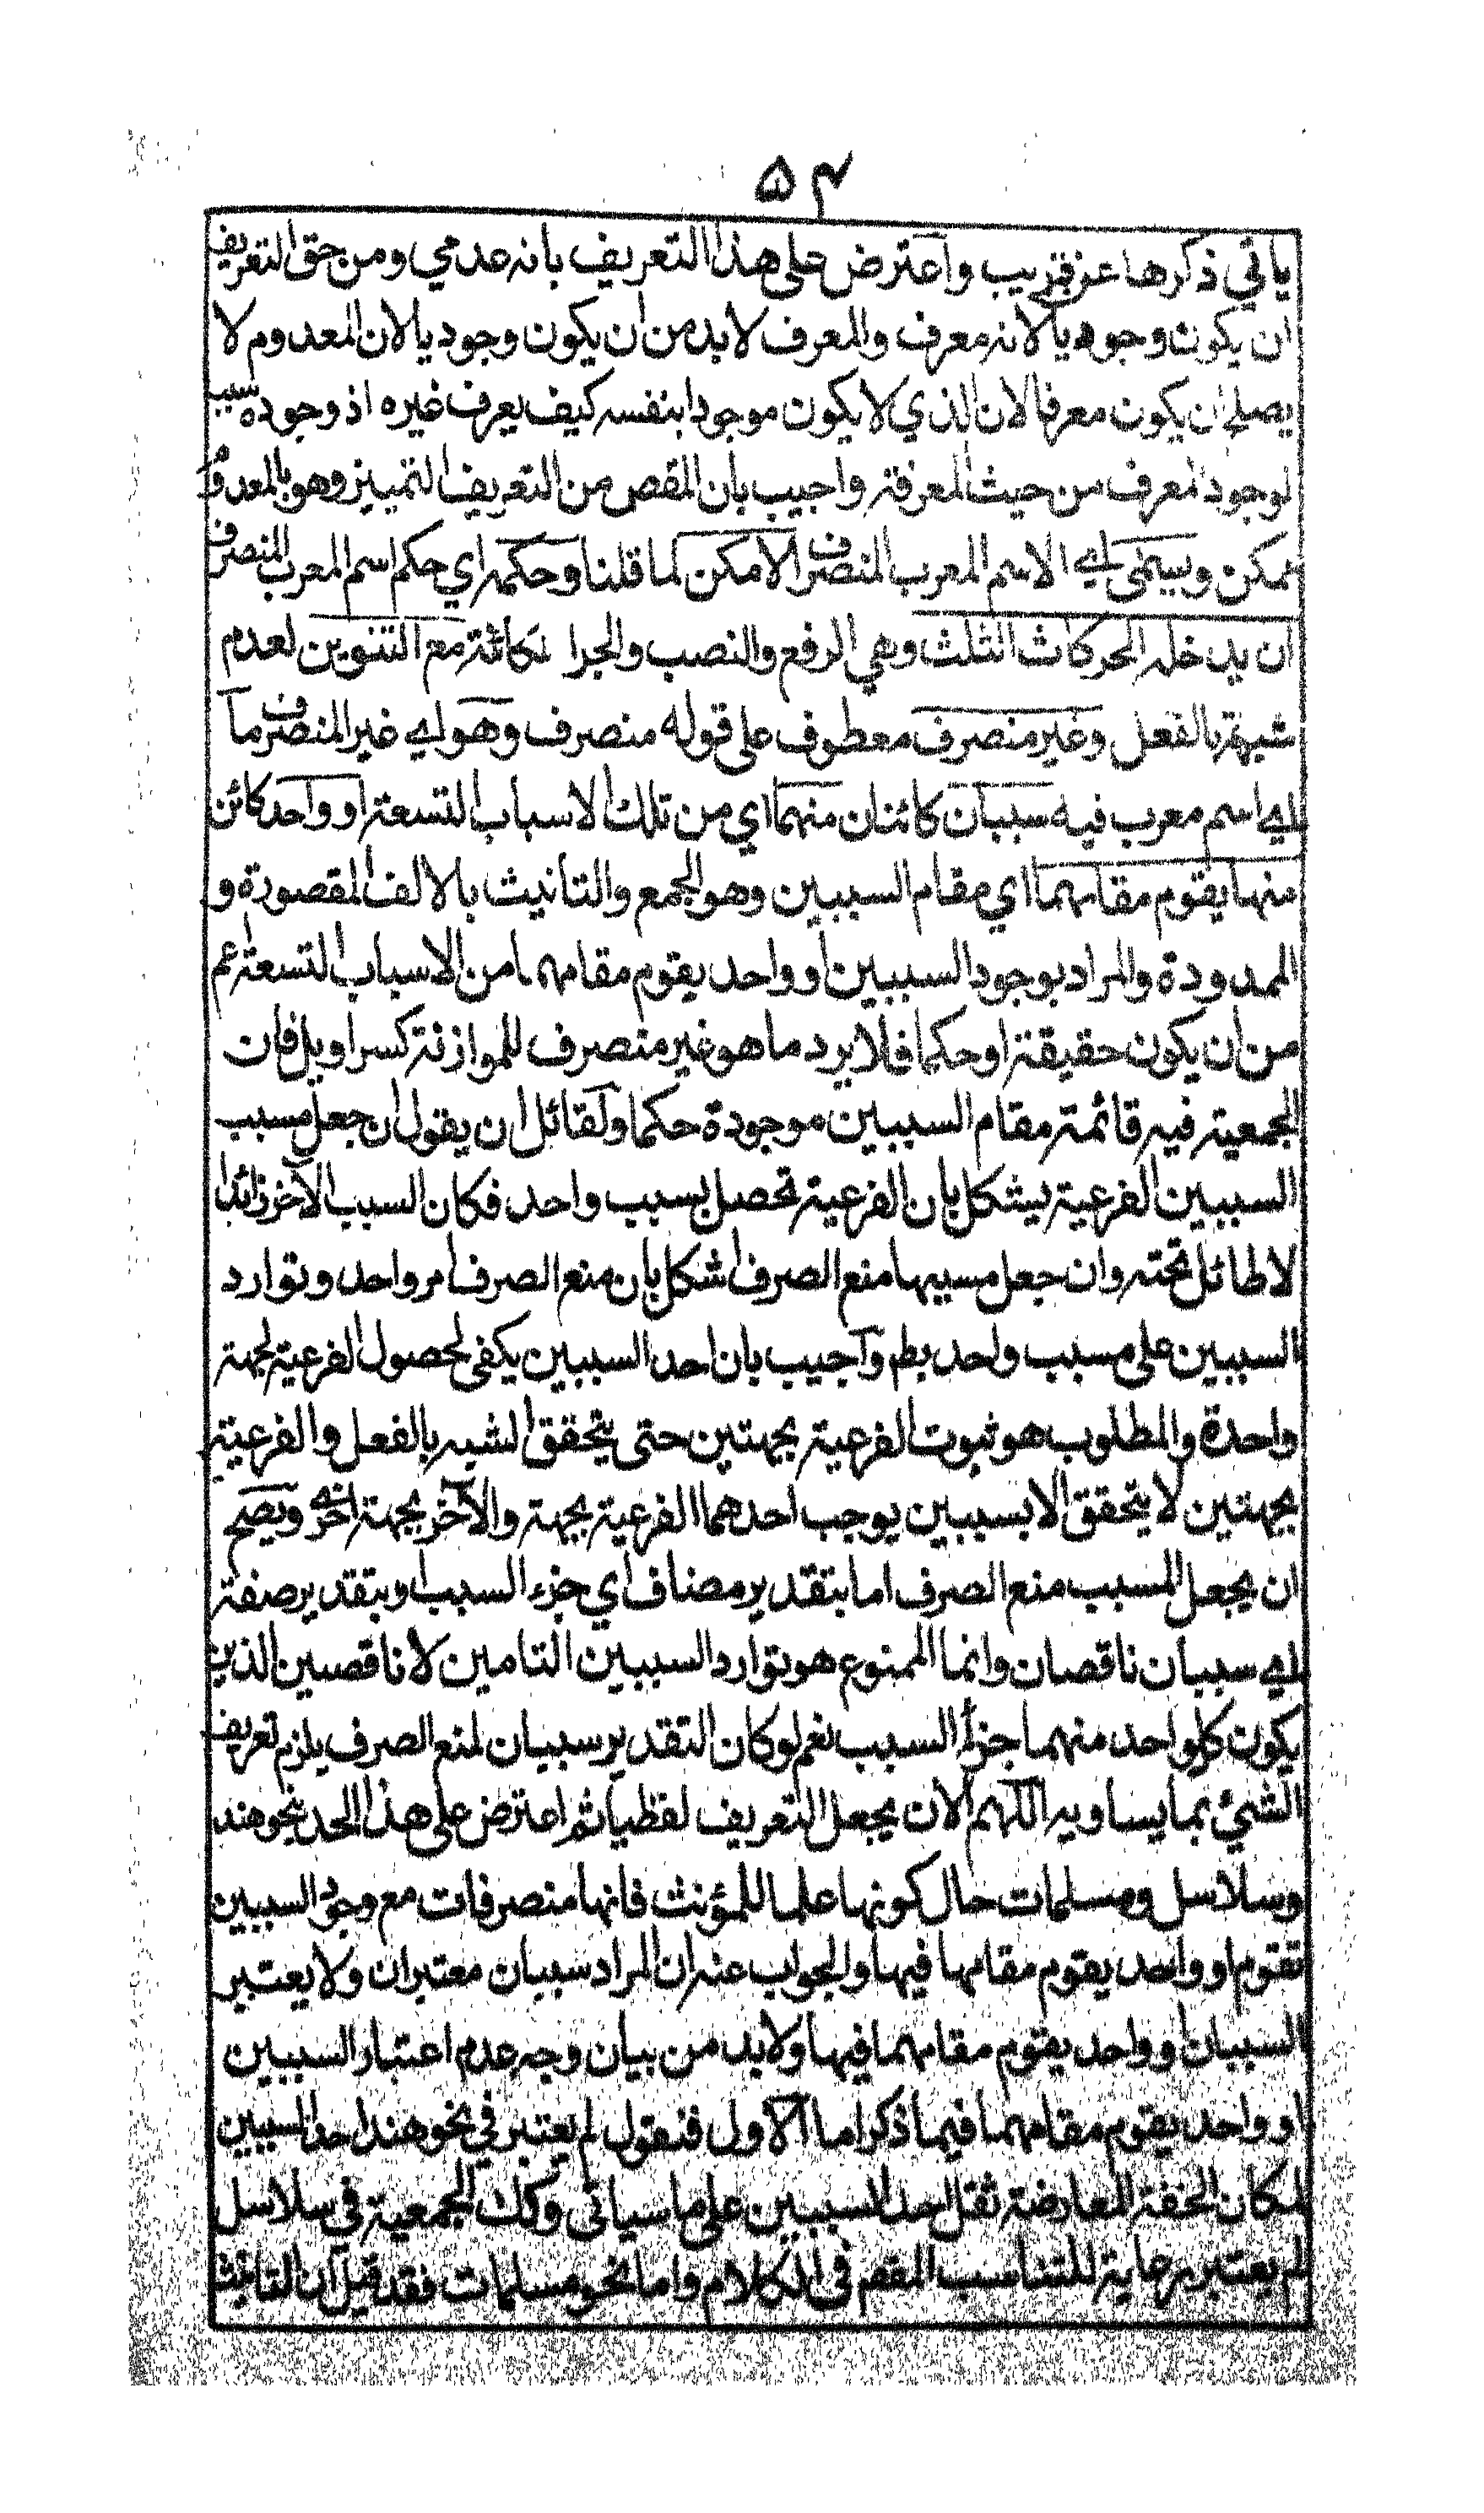 ۵۴
ياتي ذكرها عن قريب واعترض على هذا التعريف بانه عدمي ومن حق التعريف
ان يكون وجوديا لانه معرف والمعرف لابد من ان يكون وجوديا لان المعدوم لا
يصلح ان يكون معرفا لان الذي لا يكون موجودا بنفسه كيف يعرف غيره اذ وجوده سبب
لوجود المعرف من حيث المعرفة واجيب بان المقص من التعريف التمييز وهو بالمعدوم
ممكن ويسمى اي الاسم المعرب المنصرف الامكن لما قلنا وحكمه اي حكم اسم المعرب المنصرف
ان يدخله الحركات الثلث وهي الرفع والنصب والجر كائنة مع التنوين لعدم
شبهته بالفعل وغير منصرف معطوف على قوله منصرف وهو اي غير المنصرف ما
اي اسم معرب فيه سببان كائنان منهما اي من تلك الاسباب التسعة او واحد كائن
منها يقوم مقامهما اي مقام السببين وهو الجمع والتانيث بالالف المقصورة و
الممدودة والمراد بوجود السببين او واحد يقوم مقامهما من الاسباب التسعة اعم
من ان يكون حقيقة او حكما فلا يرد ما هو غير منصرف للموازنة كسراويل فان
الجمعية فيه قائمة مقام السببين موجودة حكما ولقائل ان يقول ان جعل مسبب
السببين الفرعية يشكل بان الفرعية تحصل بسبب واحد فكان السبب الآخر زائدا
لا طائل تحته وان جعل مسببها منع الصرف اشكل بان منع الصرف امر واحد وتوارد
السببين على مسبب واحد بط واجيب بان احد السببين يكفى لحصول الفرعية لجهة
واحدة والمطلوب هو ثبوت الفرعية بجهتين حتى يتحقق الشبه بالفعل والفرعية
بجهتين لا يتحقق الا بسببين يوجب احدهما الفرعية بجهة والآخر بجهة اخرى ويصح
ان يجعل المسبب منع الصرف اما بتقدير مضاف اي جزء السبب او بتقدير صفة
اي سببان ناقصان وانما الممنوع هو توارد السببين التامين لا ناقصين الذين
يكون كل واحد منهما جزأ السبب نعم لو كان التقدير سببان لمنع الصرف يلزم تعريف
الشيئ بما يساويه اللهم الا ان يجعل التعريف لفظيا ثم اعترض على هذا الحد بنحو هند
وسلاسل ومسلمات حال كونها علما للمؤنث فانها منصرفات مع وجود السببين
تقوم او واحد يقوم مقامها فيها والجواب عنه ان المراد سببان معتبران ولا يعتبر
السببان او واحد يقوم مقامهما فيها ولابد من بيان وجه عدم اعتبار السببين
او واحد يقوم مقامهما فيما ذكر اما الاول فنقول لم يعتبر في نحو هند احد السببين
لمكان الخفة المعارضة ثقل احد السببين على ما سياتى وكك الجمعية في سلاسل
لم يعتبر رعاية للتناسب المقم فى الكلام واما نحو مسلمات فقد قيل ان التانيث